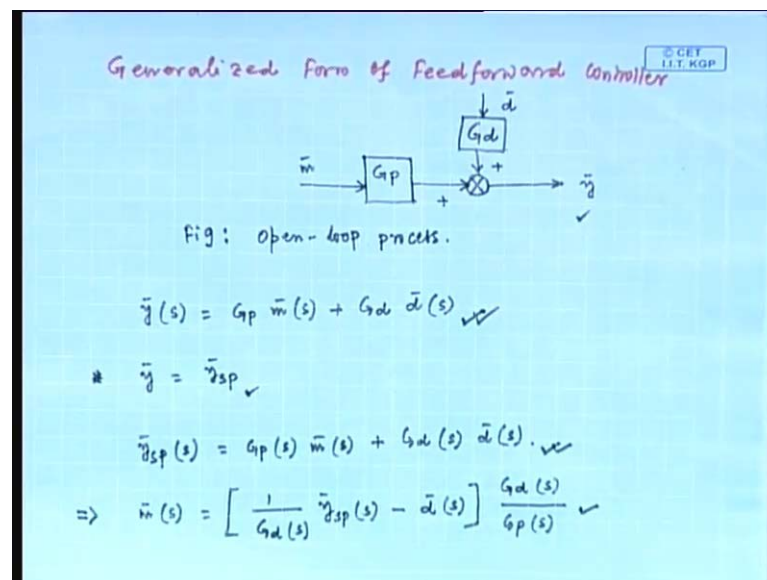 © CET
I.I.T. KGP
Generalized Form of Feedforward Controller
d̄
Gd
m̄
Gp
+
+
ȳ
Fig: Open-loop process.
ȳ(s) = Gp m̄(s) + Gd d̄(s)
* ȳ = ȳsp
ȳsp(s) = Gp(s) m̄(s) + Gd(s) d̄(s).
=> m̄(s) = [ 1/Gd(s) ȳsp(s) - d̄(s) ] Gd(s)/Gp(s)